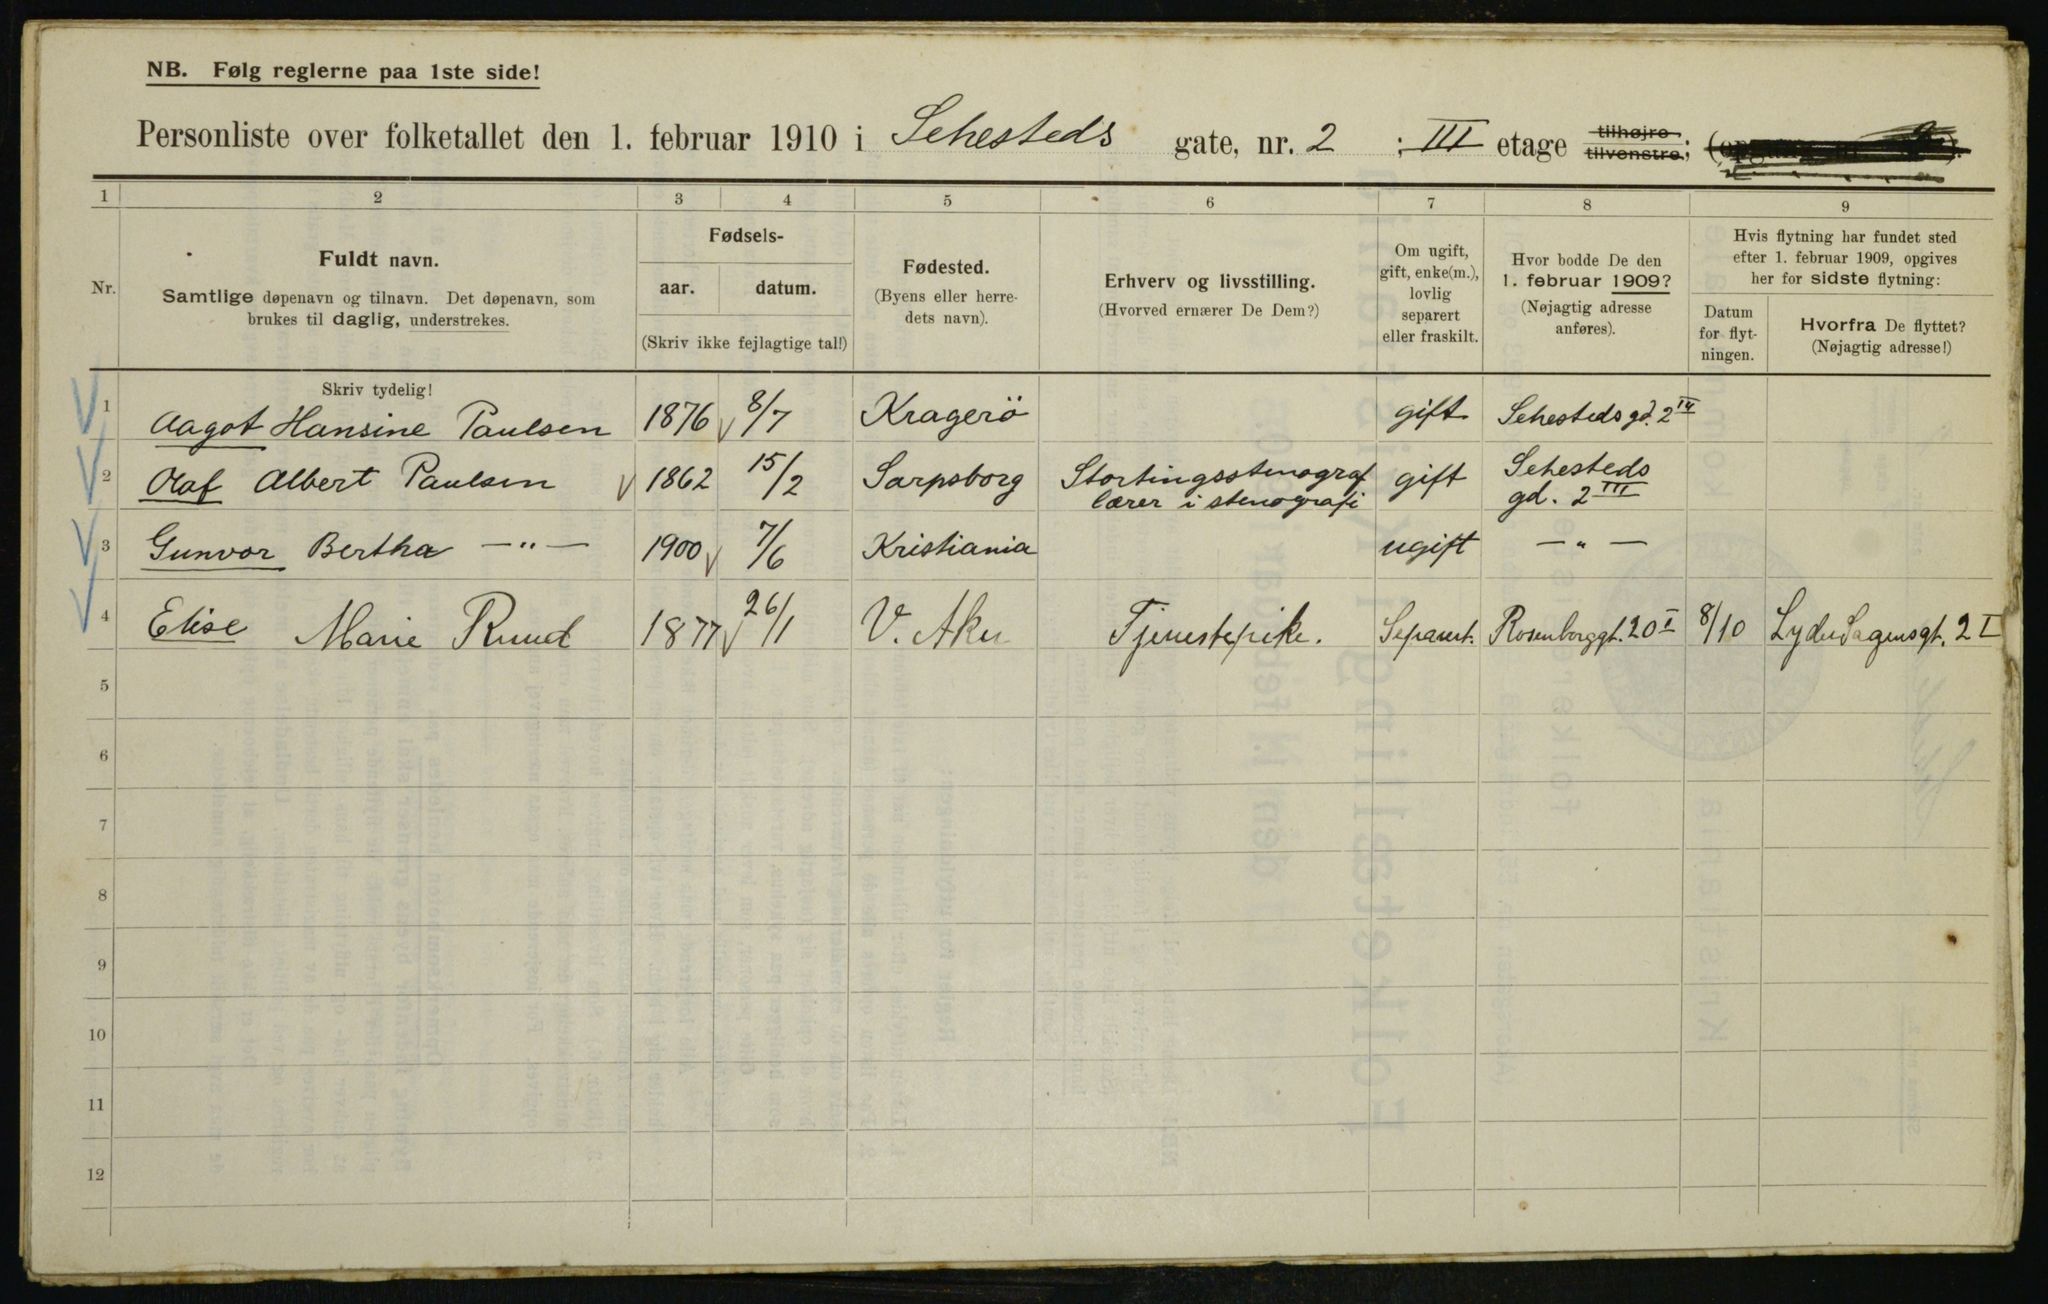 NB. Følg reglerne paa 1ste side!
Personliste over folketallet den 1. februar 1910 i Sehesteds gate, nr. 2 ; III etage tilhøjre tilvenstre;
1 2 3 4 5 6 7 8 9
Nr.
Fuldt navn.
Samtlige døpenavn og tilnavn. Det døpenavn, som
brukes til daglig, understrekes.
Skriv tydelig!
Fødsels-
aar. datum.
(Skriv ikke fejlagtige tal!)
Fødested.
(Byens eller herre-
dets navn).
Erhverv og livsstilling.
(Hvorved ernærer De Dem?)
Om ugift,
gift, enke(m.),
lovlig
separert
eller fraskilt.
Hvor bodde De den
1. februar 1909?
(Nøjagtig adresse
anføres).
Hvis flytning har fundet sted
efter 1. februar 1909, opgives
her for sidste flytning:
Datum
for flyt-
ningen.
Hvorfra De flyttet?
(Nøjagtig adresse!)
1 Aagot Hansine Paulsen 1876 8/7 Kragerö gift Sehestedsgd. 2
2 Olaf Albert Paulsen 1862 15/2 Sarpsborg Stortingsstenograf lærer i stenografi gift Sehesteds gd. 2 III
3 Gunvor Bertha —"— 1900 7/6 Kristiania ugift —"—
4 Elise Marie Ruud 1877 26/1 V. Aker Tjenestepike. Separert. Rosenborggt. 20 I 8/10 Lyder Sagensgt. 2 I
5
6
7
8
9
10
11
12